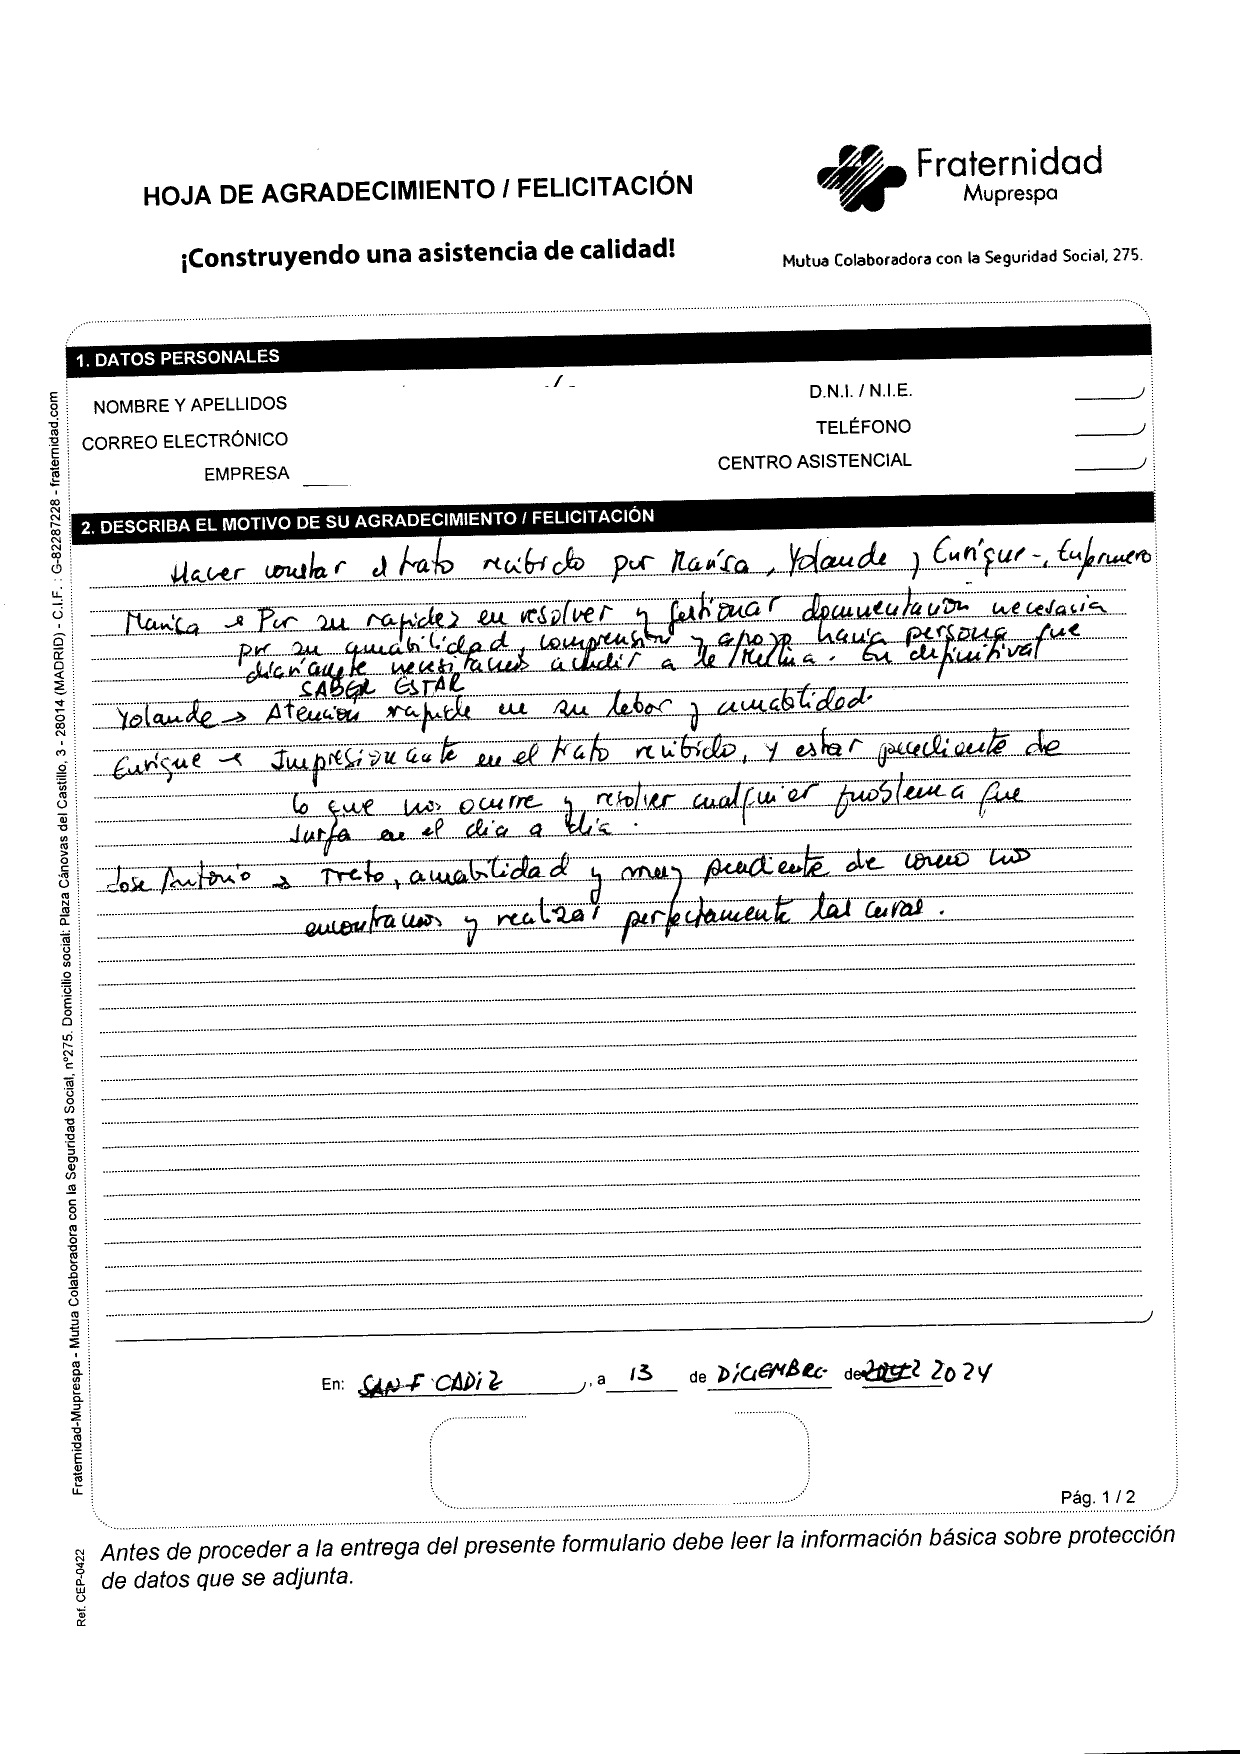 HOJA DE AGRADECIMIENTO / FELICITACIÓN
Fraternidad
Muprespa
¡Construyendo una asistencia de calidad!
Mutua Colaboradora con la Seguridad Social, 275.
1. DATOS PERSONALES
NOMBRE Y APELLIDOS
D.N.I. / N.I.E.
CORREO ELECTRÓNICO
TELÉFONO
EMPRESA
CENTRO ASISTENCIAL
2. DESCRIBA EL MOTIVO DE SU AGRADECIMIENTO / FELICITACIÓN
Hacer constar el trato recibido por Marisa, Yolanda y Enrique -, Enfermero
Marisa → Por su rapidez en resolver y gestionar documentación necesaria
por su amabilidad, comprensión y apoyo hacia persona que
diariamente necesitamos acudir a la Mutua. En definitiva
SABER ESTAR
Yolanda → Atención rapida en su labor y amabilidad.
Enrique → Impresionante en el trato recibido, y estar pendiente de
lo que nos ocurre y resolver cualquier problema que
surja en el dia a dia.
Jose Antonio → Trato, amabilidad y muy pendiente de como nos
encontramos y realizar perfectamente las curas.
En: SAN F CADIZ, a 13 de DICIEMBRE de 2024
Pág. 1 / 2
Antes de proceder a la entrega del presente formulario debe leer la información básica sobre protección
de datos que se adjunta.
Fraternidad-Muprespa - Mutua Colaboradora con la Seguridad Social, nº275. Domicilio social: Plaza Cánovas del Castillo, 3 - 28014 (MADRID) - C.I.F. : G-82287228 - fraternidad.com
Ref. CEP-0422